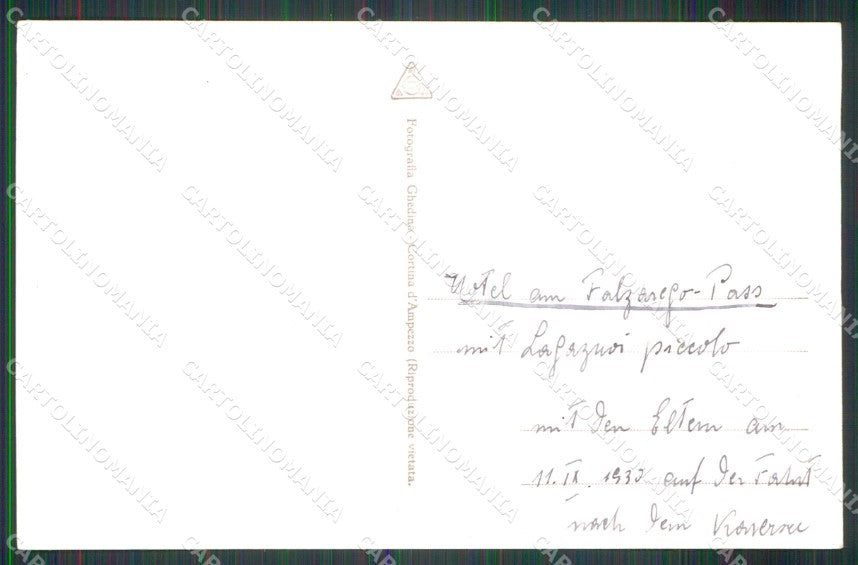 Fotografia Ghedina - Cortina d'Ampezzo (Riproduzione vietata.
Hotel am Falzarego-Pass
mit Lagazuoi piccolo
mit den Eltern am
11. IX. auf der Fahrt
nach dem
CARTOLINOMANIA